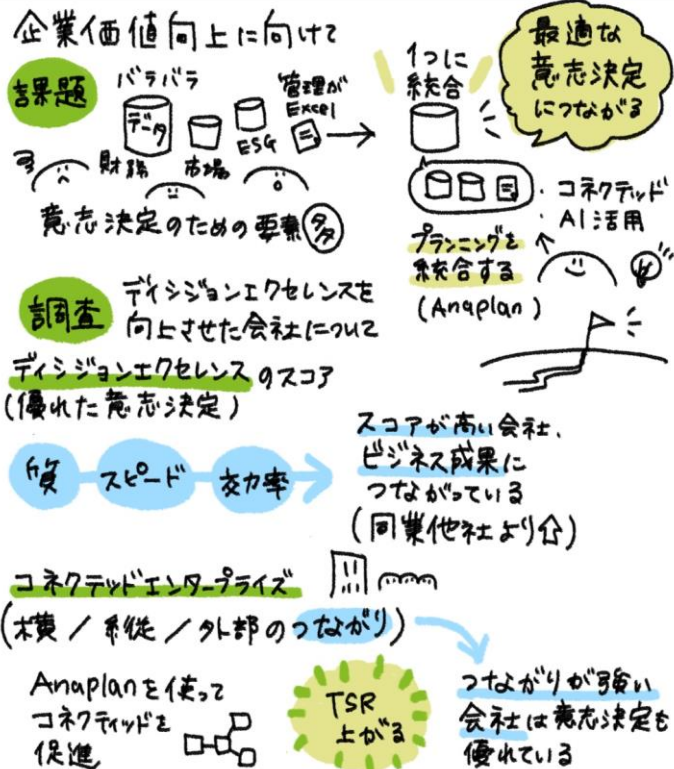 企業価値向上に向けて
課題
バラバラ
データ
財務
市場
ESG
管理が
Excel
意志決定のための要素多
1つに
統合
最適な
意志決定
につながる
・コネクテッド
・AI活用
プランニングを
統合する
(Anaplan)
調査
ディシジョンエクセレンスを
向上させた会社について
ディシジョンエクセレンスのスコア
(優れた意志決定)
質
スピード
効率
スコアが高い会社、
ビジネス成果に
つながっている
(同業他社より⇧)
コネクテッドエンタープライズ
(横/縦/外部のつながり)
Anaplanを使って
コネクティッドを
促進
TSR
上がる
つながりが強い
会社は意志決定も
優れている